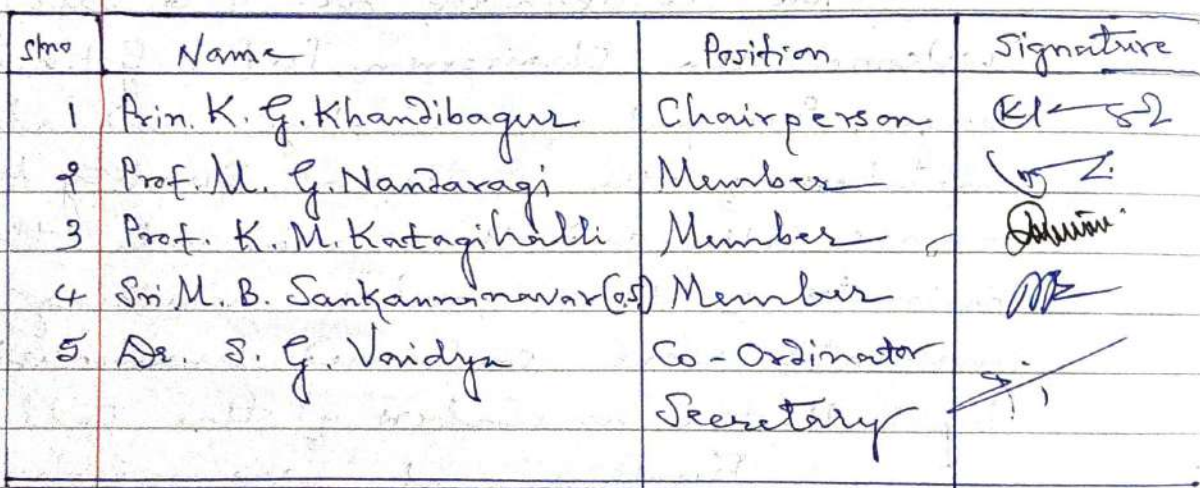 slno Name Position Signature
1 Prin. K. G. Khandibagur Chairperson
2 Prof. M. G. Nandaragi Member
3 Prof. K. M. Katagihalli Member
4 Sri M. B. Sankanninavar (O.S) Member
5. Dr. S. G. Vaidya Co-Ordinator
Secretary